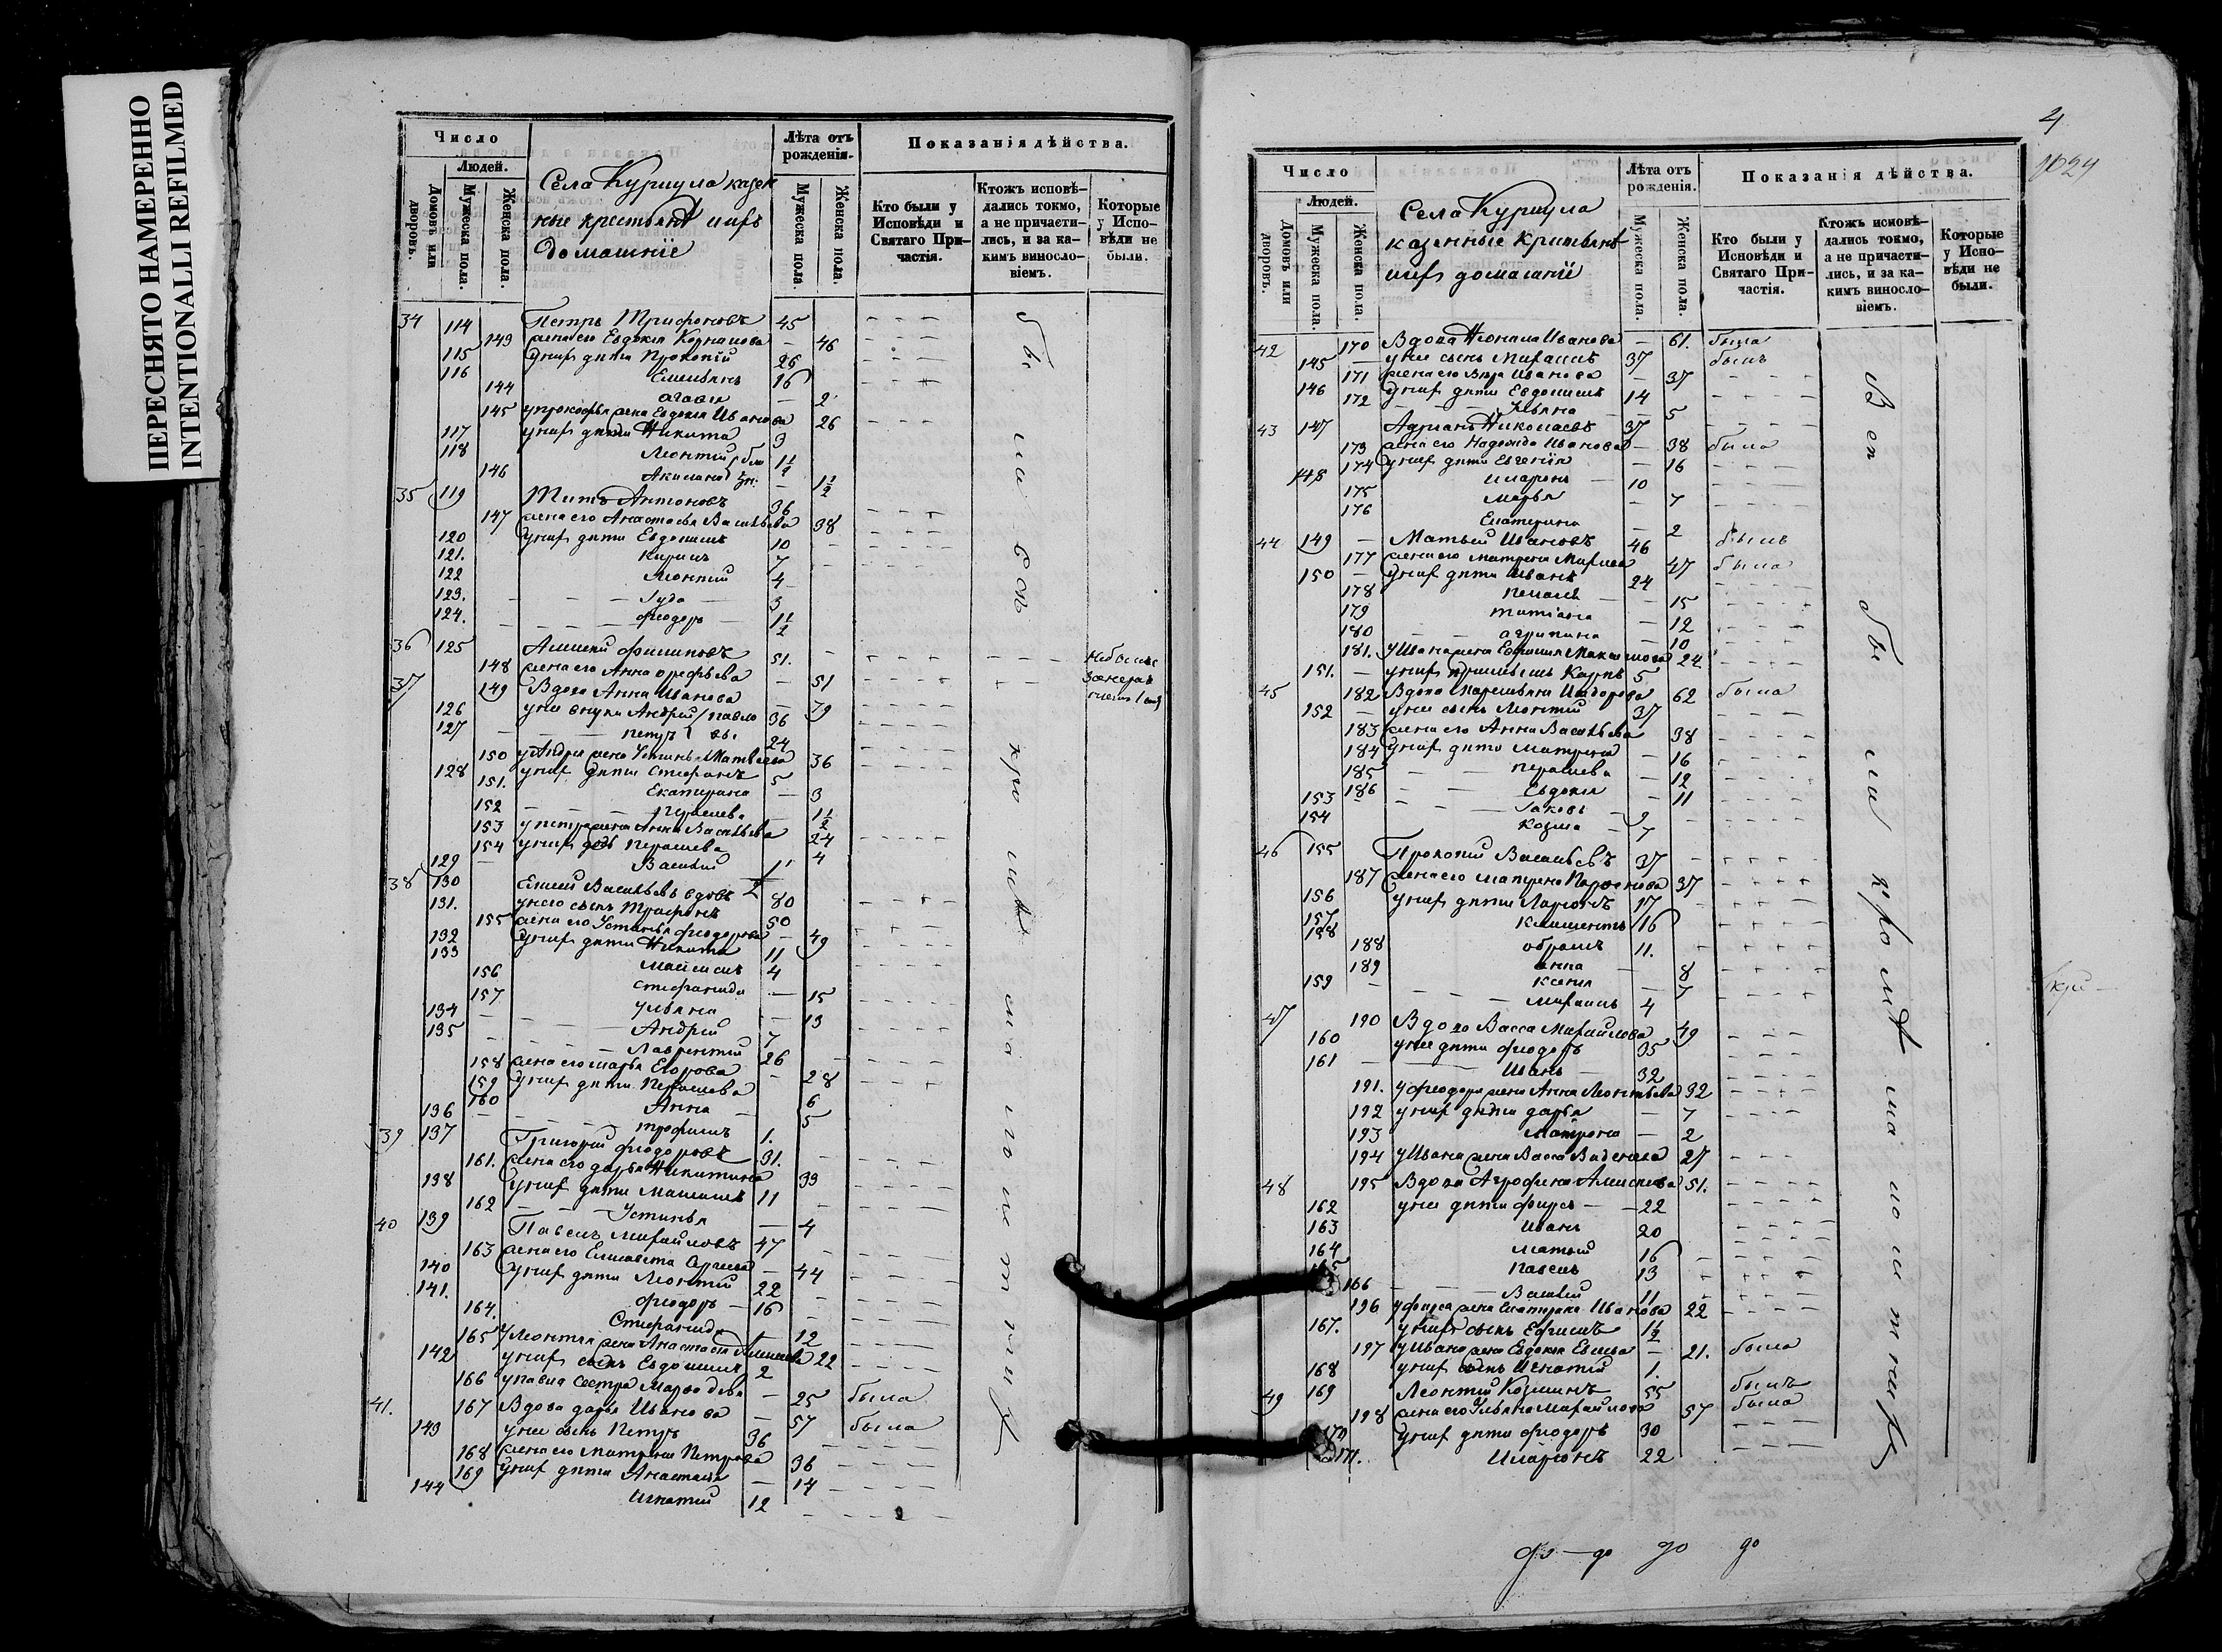 ПЕРЕСНЯТО НАМЕРЕННО
INTENTIONALLI REFILMED
Число
Людей.
Домовъ или дворовъ.
Мужеска пола.
Женска пола.
Села Куршула казен
ные крестьяне ихъ
домашніе
Лѣта отъ рожденія.
Мужеска пола.
Женска пола.
Показанія дѣйства.
Кто были у Исповѣди и Святаго При-частія.
Ктожъ исповѣ-дались токмо, а не причасти-лись, и за ка-кимъ винословіемъ.
Которые у Испо-вѣди не были.
34 114 Петръ Трифоновъ 45
143 жена его Евдокія 46
115 у нихъ дѣти Прокопій 26
116 Емельянъ 16
144 2
145 жена Евдокія Иванова 26
117 у нихъ дѣти Никита 3
118 Леонтій 1 1/2
146 Акилина 1 1/2
35 119 Титъ Антоновъ 36
147 жена его Анастасья Васильева 38
120 у нихъ дѣти Евдокимъ 10
121. Кирилъ 7
122 Леонтій 4
123. Іуда 3
124. Ѳеодоръ 1 1/2
36 125 Алексей Филиповъ 51.
148 жена его Анна 51
37 149 Вдова Анна Иванова 79
126 у нее внуки Андрей 36
127 Петръ 24
150 у Андрея жена Устинья Матвеева 36
128 у нихъ дѣти Стефанъ 5
151. Екатерина 3
152 Пелагея 1 1/2
153 у Петра жена Анна Васильева 24
154 у нихъ дочь Пелагея 4
129 Василий 1/2
38 130 Васильевъ вдовъ 80
131. у него сынъ Трифонъ 50
155 жена его Устинья Ѳеодорова 49
132 у нихъ дѣти Никита 11
133 Максимъ 4
156 Стефанида 15
157 Ульяна 13
134 Андрей 7
135 Лаврентий 26
158 жена его Марья Егорова 28
159 у нихъ дѣти Пелагея 6
160 Анна 5
136 Трофимъ 1.
39 137 Григорий Ѳеодоровъ 31.
161. жена его Дарья Никитина 33
138 у нихъ дѣти Максимъ 11
162 Устинья 4
40 139 Павелъ Михайловъ 47
163 жена его Елисавета 44
140 у нихъ дѣти Леонтий 22
141. Ѳеодоръ 16
164. Стефанида 12
165 у Леонтья жена Анастасья 22
142 у нихъ сынъ Евдокимъ 2
166 у Павла сестра Марья дева 25 была
41. 167 Вдова Дарья Иванова 57 была
143 у нее сынъ Петръ 36
168 жена его Матрена Петрова 36
169 у нихъ дѣти Анастасия 14
144 Игнатий 12
4
1024
Число
Людей.
Домовъ или дворовъ.
Мужеска пола.
Женска пола.
Села Куршула
казенные крестьяне
ихъ домашніе
Лѣта отъ рожденія.
Мужеска пола.
Женска пола.
Показанія дѣйства.
Кто были у Исповѣди и Святаго При-частія.
Ктожъ исповѣ-дались токмо, а не причасти-лись, и за ка-кимъ винословіемъ.
Которые у Испо-вѣди не были.
42 170 Вдова Иванова 61. была
145 у нее сынъ Михаилъ 37 былъ
171 жена его Вера Иванова 37
146 у нихъ дѣти Евдокимъ 14
172 Ульяна 5
43 147 Адрианъ Николаевъ 37
173 жена его Надежда Иванова 38 была
174 у нихъ дѣти Евгения 16
148 Иларионъ 10
175 Марья 7
176 Екатерина 2
44 149 Матвей Ивановъ 46 былъ
177 жена его Матрена 47 была
150 у нихъ дѣти Иванъ 24
178 Пелагея 15
179 Татиана 12
180 Агрипина 10
181. у Ивана жена Евфимия Максимова 24
151. у нихъ Карпъ 5
45 182 Вдова Маремьяна 62 была
152 у нее сынъ Леонтий 37
183 жена его Анна Васильева 38
184 у нихъ дѣти Матрена 16
185 Пелагея 12
186 Евдокия 11
153 Іаковъ 9
154 Козма 7
46 155 Прокопий Васильевъ 37
187 жена его Матрена 37
156 у нихъ дѣти Ларионъ 17
157 Климентъ 16
158 11.
188 Анна 8
189 Ксения 7
159 Михаилъ 4
47 190 Вдова Васса Михайлова 49
160 у нее дѣти Ѳеодоръ 35
161 Иванъ 32
191. у Ѳеодора жена Анна Леонтьева 32
192 у нихъ дѣти Дарья 7
193 Матрона 2
194 у Ивана жена Васса 27
48 195 Вдова Агрофена Алексеева 51.
162 у нее дѣти Фирсъ 22
163 Иванъ 20
164 Матвей 16
165 Павелъ 13
166 Василий 11
196 у Фирса жена Екатерина Иванова 22
167. у нихъ сынъ Ефимъ 1 1/2
197 у Ивана жена Евдокия 21. была
168 у нихъ сынъ Игнатий 1.
49 169 Леонтий Козминъ 55 былъ
198 жена его Ульяна Михайлова 57 была
170 у нихъ дѣти Ѳеодоръ 30
171. Иларионъ 22